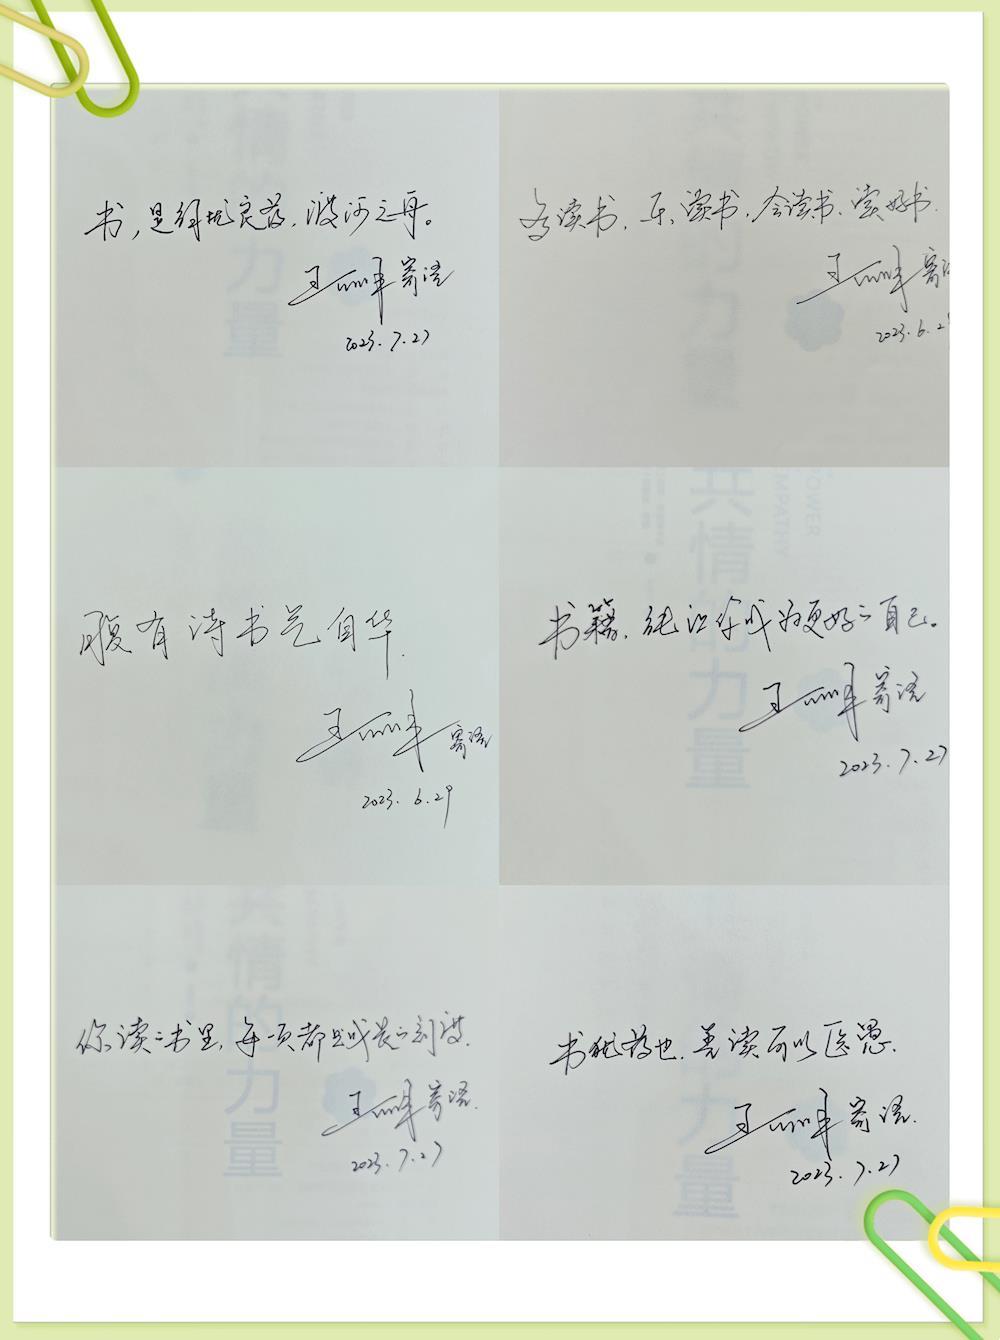 书，是纾忧良药，渡河之舟。
寄语
2023.7.27
多读书、乐读书、会读书、读好书.
寄语
2023.6.2
腹有诗书气自华.
寄语
2023.6.29
书籍，能让你成为更好的自己。
寄语
2023.7.27
你读的书里，每页都是成长的刻度.
寄语.
2023.7.27
书犹药也，善读可以医愚.
寄语.
2023.7.27
共情的力量
POWER
EMPATHY